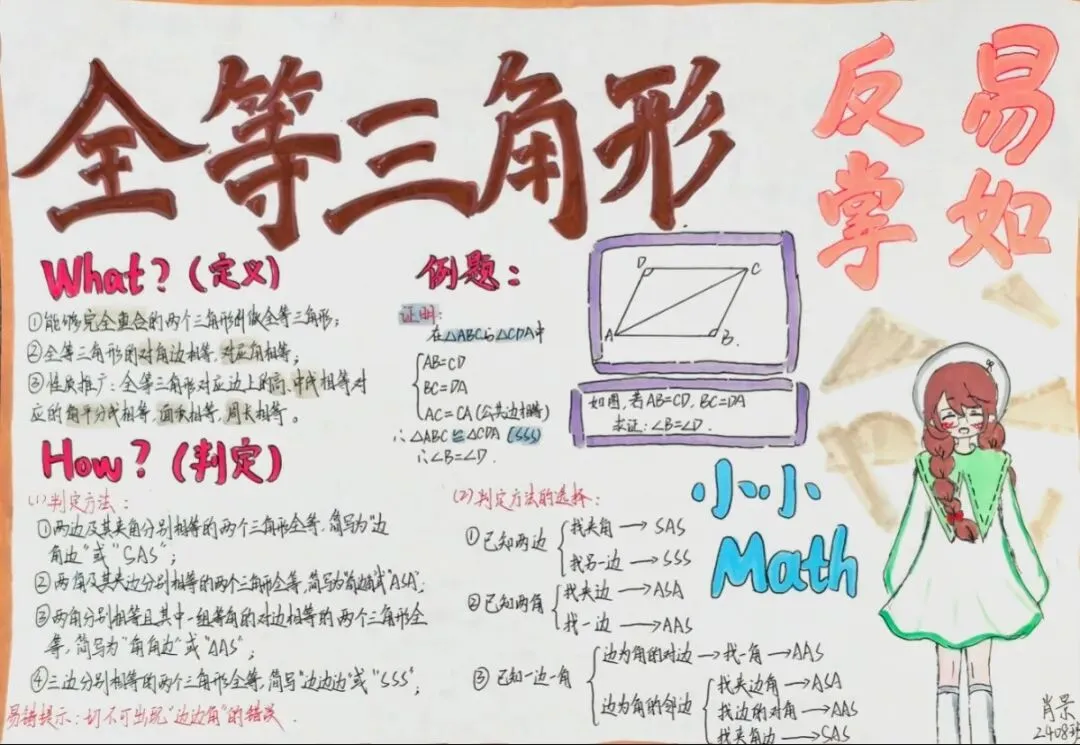 全等三角形
易如
反掌
What?(定义)
①能够完全重合的两个三角形叫做全等三角形;
②全等三角形的对角边相等,对应角相等;
③性质推广:全等三角形对应边上的高、中线相等对
应的角平分线相等,面积相等,周长相等。
例题:
证明:
在△ABC与△CDA中
AB=CD
BC=DA
AC=CA(公共边相等)
∴△ABC≌△CDA(SSS)
∴∠B=∠D.
D
C
A
B.
如图,若AB=CD,BC=DA
求证:∠B=∠D.
How?(判定)
(1)判定方法:
①两边及其夹角分别相等的两个三角形全等,简写为"边
角边"或"SAS";
②两角及其夹边分别相等的两个三角形全等,简写为"角边角"或"ASA";
③两角分别相等且其中一组等角的对边相等的两个三角形全
等,简写为"角角边"或"AAS";
④三边分别相等的两个三角形全等,简写"边边边"或"SSS";
易错提示:切不可出现"边边角"的错误.
(2)判定方法的选择:
①已知两边
找夹角→SAS
找另一边→SSS
②已知两角
找夹边→ASA
找一边→AAS
③已知一边一角
边为角的对边→找一角→AAS
边为角的邻边
找夹边角→ASA
找边的对角→AAS
找夹角边→SAS
小小
Math
肖景
2408班